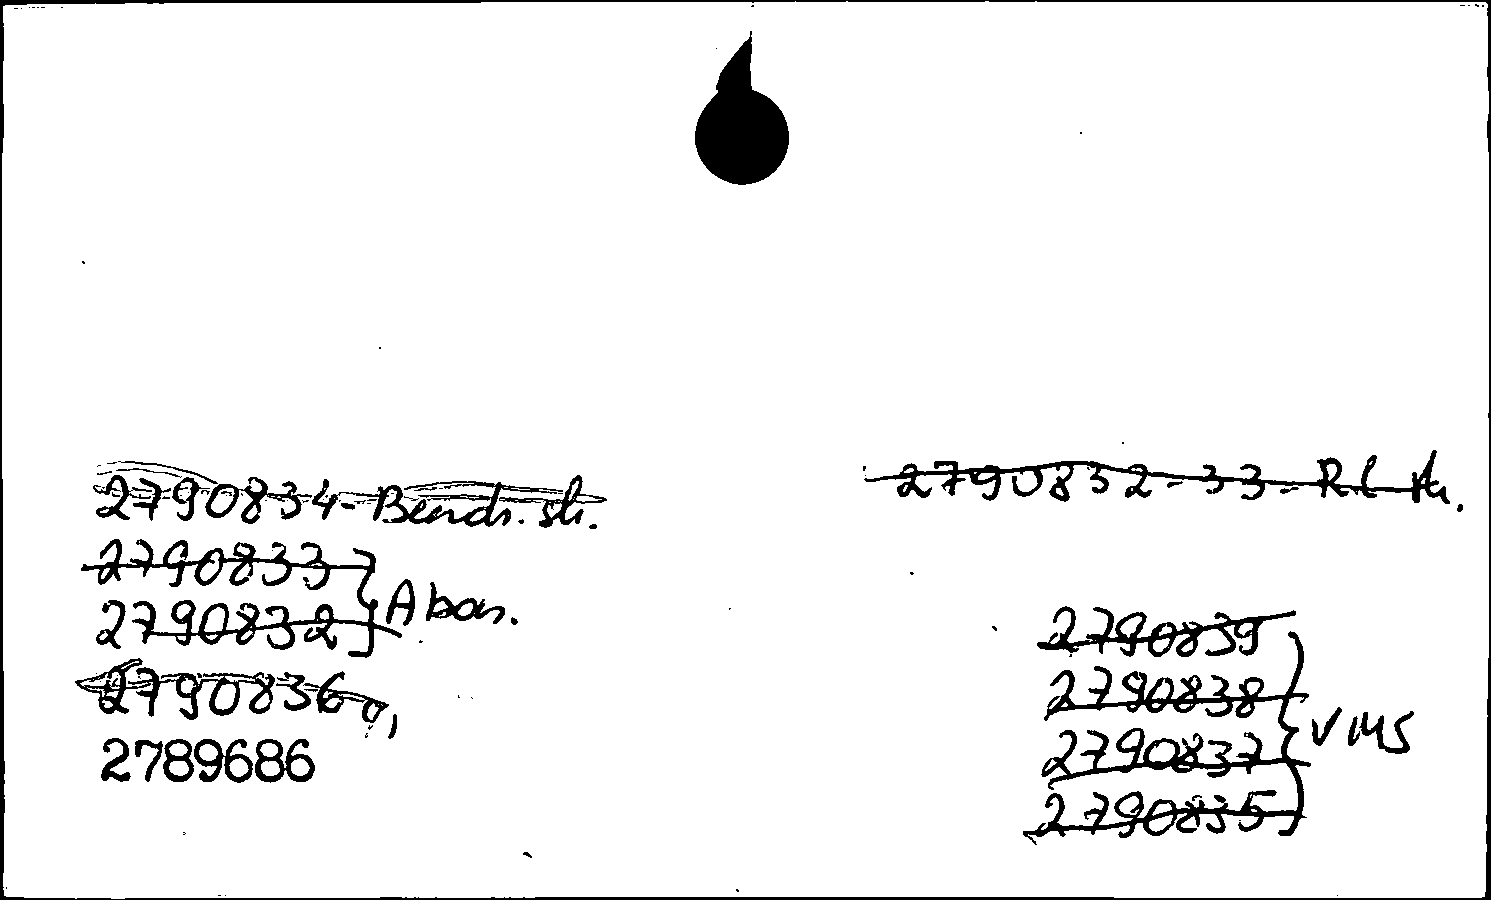 2790834-Bendr. str.
2790833
2790832 } Abon.
2790836
2789686
2790832-33-
2790839
2790838
2790837
2790835 } VMS